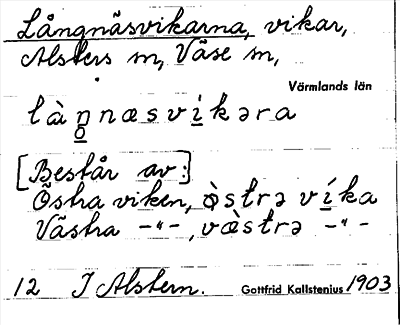 Långnäsvikarna, vikar,
Alsters sn, Väse sn,
Värmlands län
làn̥næsvi̲kəra
[Består av:]
Östra viken, ò̤strə vi̲ka
Västra –"–, væ̀strə –"–
12 I Alstern. Gottfrid Kallstenius 1903